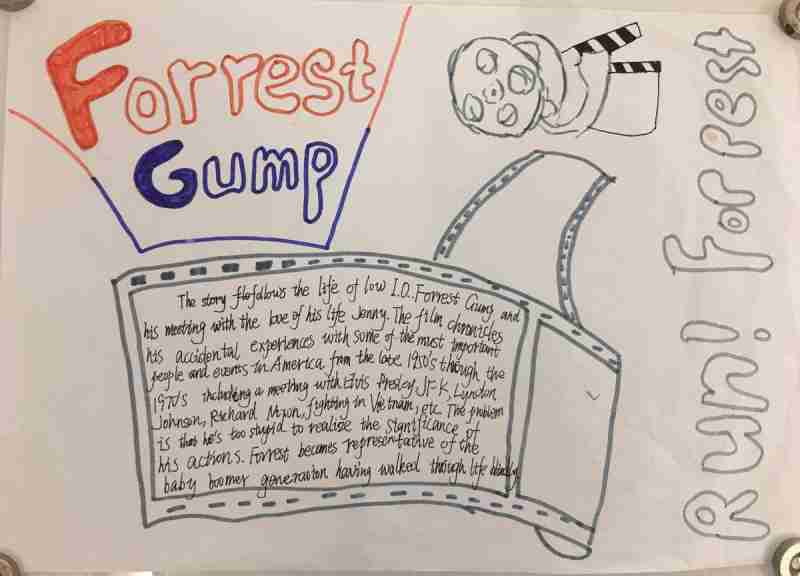 Forrest
Gump
The story flofollows the life of low I.Q. Forrest Gump and
his meeting with the love of his life Jenny. The film chronicles
his accidental experiences with some of the most important
people and events in America from the late 1950's through the
1970's including a meeting with Elvis Presley, JFK, Lyndon
Johnson, Richard Nixon, fighting in Vietnam, etc. The problem
is that he's too stupid to realize the significance of
his actions. Forrest becomes representative of the
baby boomer generation having walked through life blindly
Run! Forrest